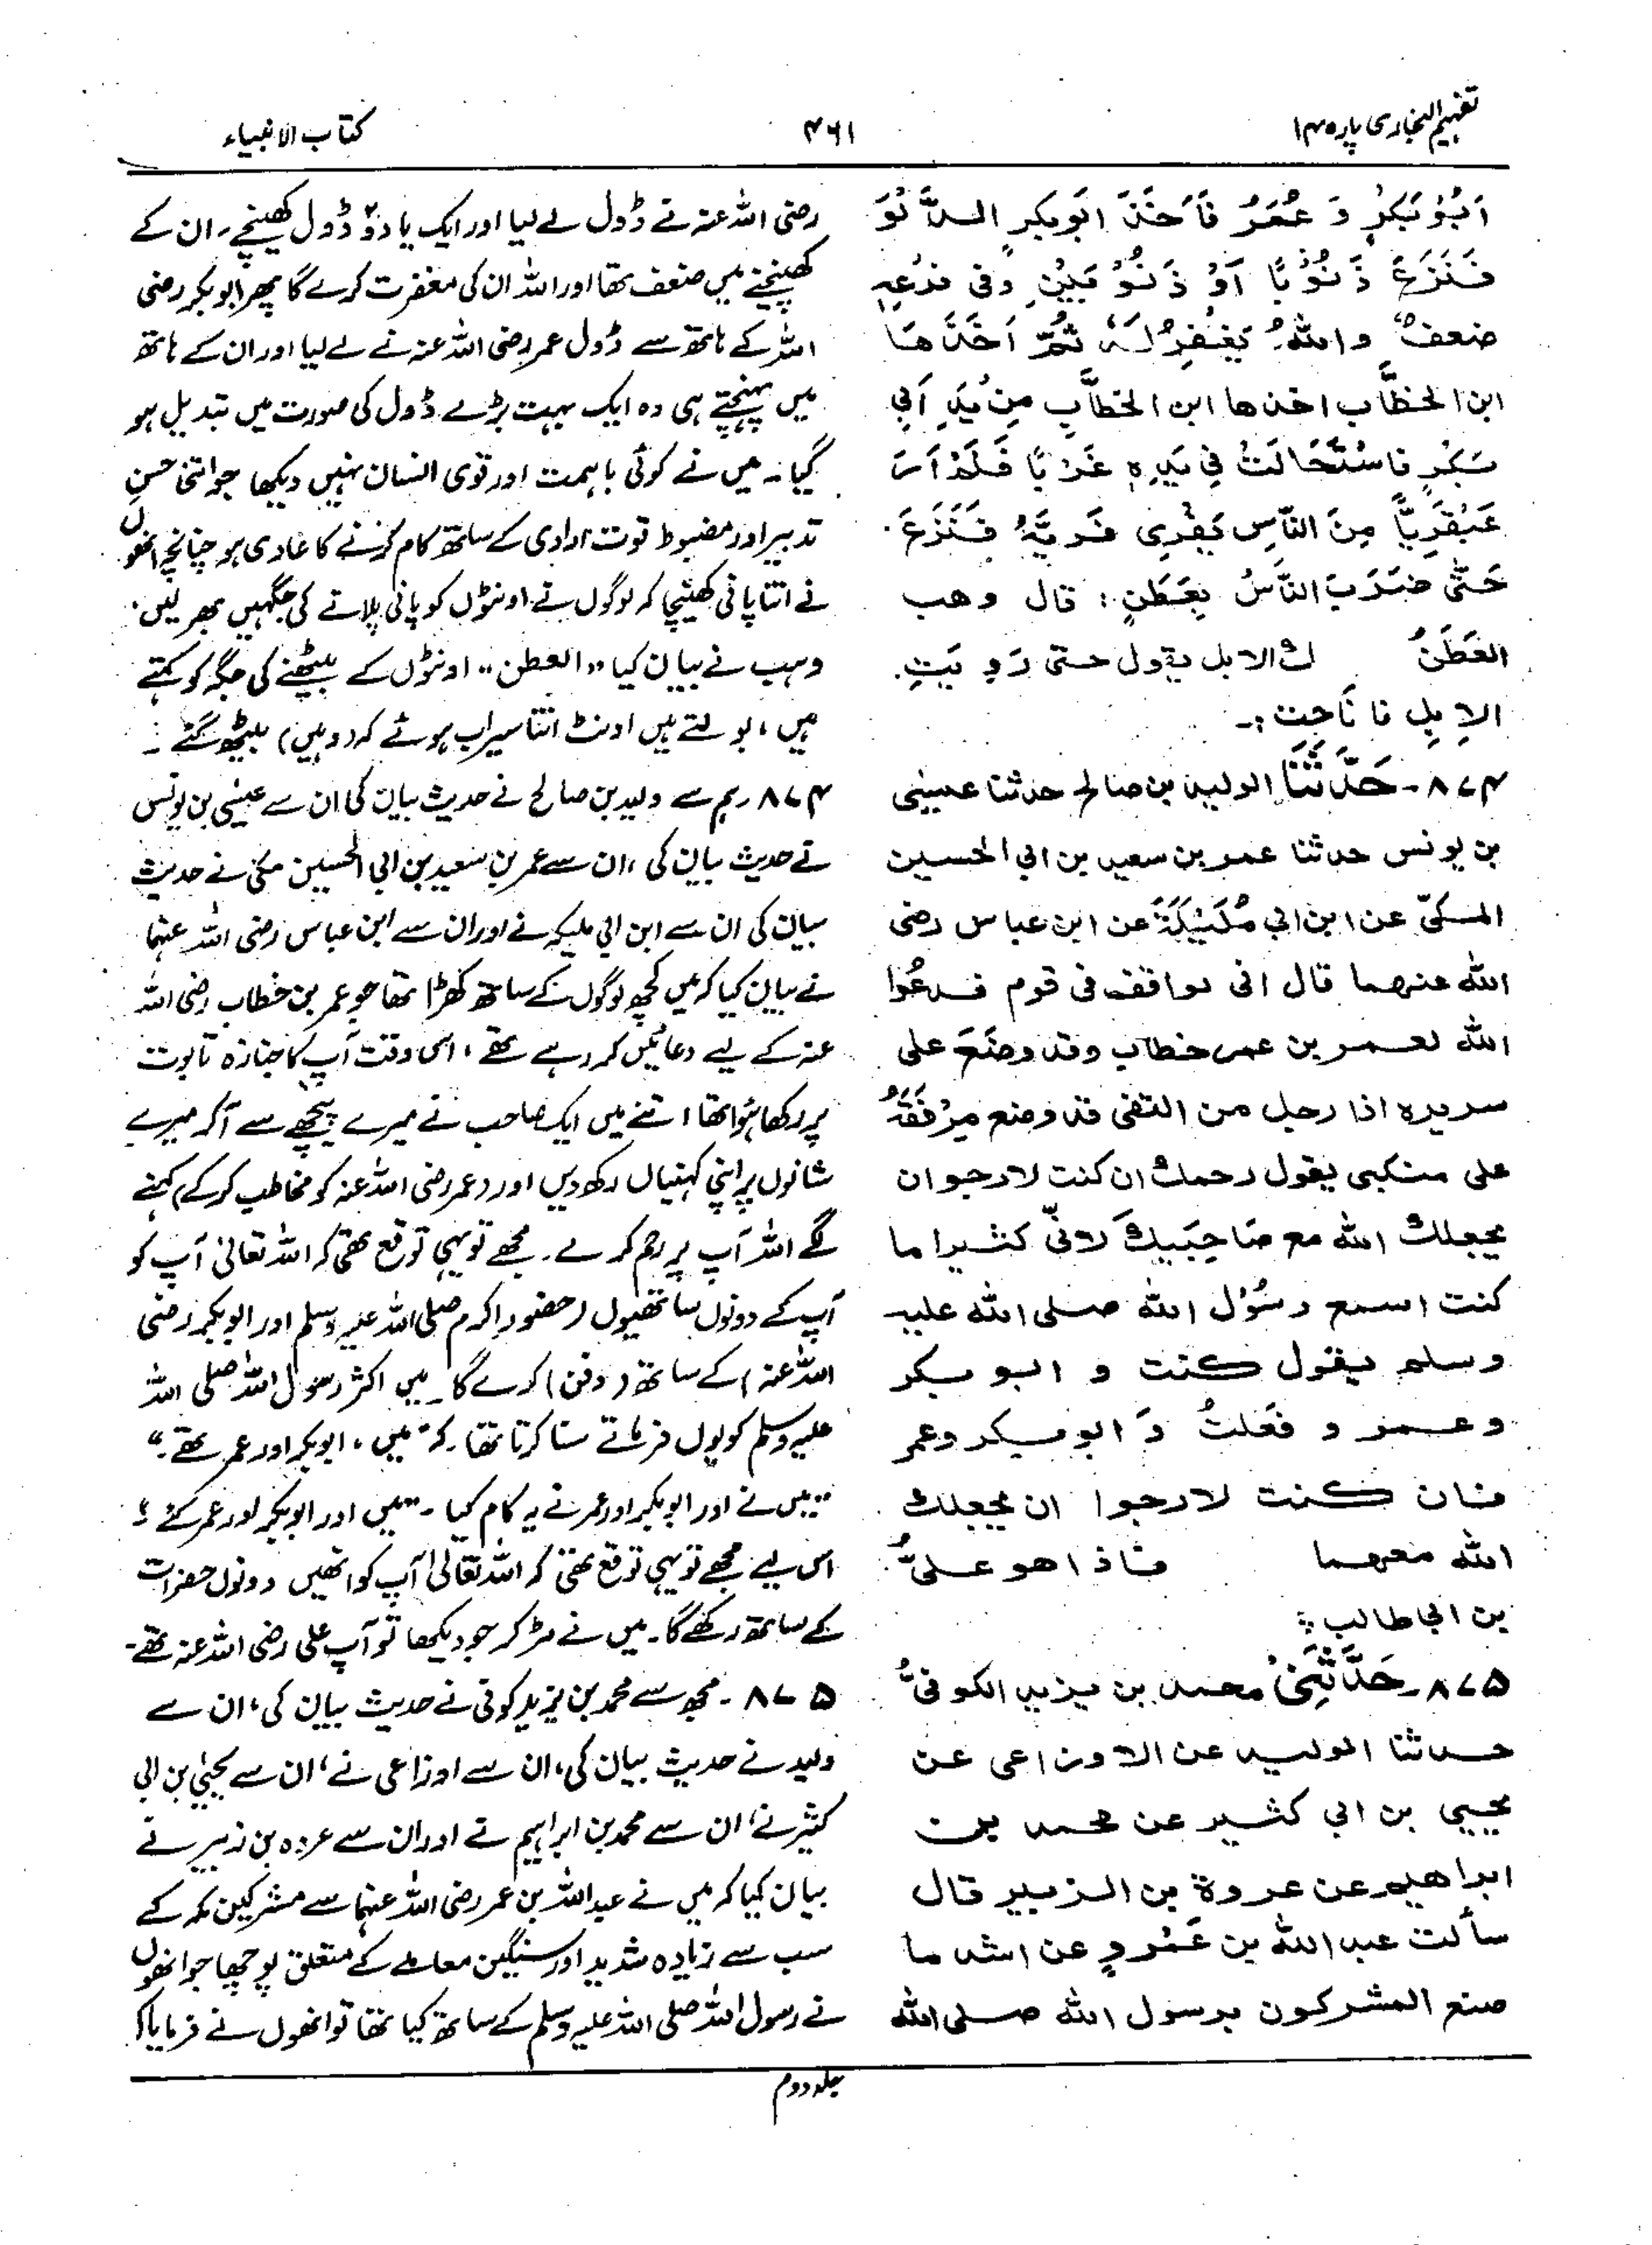 تفہیم البخاری پارہ ۱۴
۴۶۱
کتاب الانبیاء
اَبُوْ بَكرٍ وَ عُمَرُ فَاَخَذَ ابوبكر الدَّ لْوَ
فَنَزَعَ ذَنُوْبًا اَوْ ذَنُوْ بَيْنِ وفى نزعِهٖ
ضعفٌ واللهُ يَغْفِرُ لَهٗ ثُمَّ اَخَذَهَا
ابن الخطَّاب اخذها ابن الخطَّابِ مِنْ يَدِ اَبِي
بَكْرٍ فاسْتَحَالَتْ فِي يَدِهٖ غَرْبًا فَلَمْ اَرَ
عَبْقَرِيًّا مِنَ النَّاسِ يَفْرِى فَرِيَّهُ فَنَزَعَ
حَتّٰى ضَرَبَ النَّاسُ بِعَطَنٍ؛ قال وهب
العَطَنُ ك الابل يقول حتى رَوِ يَتِ
الاِبِلِ فَا نَاخِتِ ؛۔
۸۷۴۔ حَدَّثَنَا الوليد بن صالح حدثنا عيسٰى
بن يونس حدثنا عمر بن سعيد بن ابي الحسين
المكىّ عن ابن ابي مُلَيْكَةَ عن ابن عباس رضى
الله عنهما قال انى لواقف فى قوم فدعُوا
الله لعمر بن عمر خطاب وقد وضَعَ على
سريره اذا رجل من التفى قد وضع مِرْفَقَهُ
على منكبى يقول رحمك ان كنت لارجوان
يجعلك الله مع صَاحِبَيكَ لانّى كثيرا ما
كنت اسمع رسُوْل الله صلى الله عليه
وسلم يقول كنت و ابو بكر
وعمر و فعَلتُ وَ ابو بكر وعمر
فان كنت لارجوا ان يجعلك
الله معهما فاذا هو علىُّ
بن ابي طالب ؛
۸۷۵۔ حَدَّثَنِىْ محمد بن يزيد الكوفىُّ
حدثنا الوليد عن الاوزاعى عن
يحيي بن ابي كثير عن محمد بن
ابراهيم عن عروة بن الزبير قال
سألت عبد الله بن عَمْروٍ عن اشد ما
صنع المشركون برسول الله صلى الله
رضی اللہ عنہ نے ڈول لے لیا اور ایک یا دوؔ ڈول کھینچے، ان کے
کھینچنے میں ضعف تھا اور اللہ ان کی مغفرت کرے گا پھر ابوبکر رضی
اللہ کے ہاتھ سے ڈول عمر رضی اللہ عنہ نے لے لیا اور ان کے ہاتھ
میں پہنچتے ہی وہ ایک بہت بڑے ڈول کی صورت میں تبدیل ہو
گیا۔ میں نے کوئی باہمت اور قوی انسان نہیں دیکھا جو اتنی حسنِ
تدبیر اور مضبوط قوت ارادی کے ساتھ کام کرنے کا عادی ہو چنانچہ انھوں
نے اتنا پانی کھینچا کہ لوگوں نے اونٹوں کو پانی پلانے کی جگہیں بھر لیں،
وہب نے بیان کیا ”العطن“ اونٹوں کے بیٹھنے کی جگہ کو کہتے
ہیں، بولتے ہیں اونٹ اتنا سیراب ہوئے کہ (وہیں) بیٹھ گئے ۔
۸۷۴ ہم سے ولید بن صالح نے حدیث بیان کی ان سے عیسٰی بن یونس
نے حدیث بیان کی، ان سے عمر بن سعید بن ابی الحسین مکی نے حدیث
بیان کی ان سے ابن ابی ملیکہ نے اور ان سے ابن عباس رضی اللہ عنہما
نے بیان کیا کہ میں کچھ لوگوں کے ساتھ کھڑا تھا جو عمر بن خطاب رضی اللہ
عنہ کے لیے دعائیں کر رہے تھے، اسی وقت آپ کا جنازہ تابوت
پر رکھا ہوا تھا اتنے میں ایک صاحب نے میرے پیچھے سے آکر میرے
شانوں پر اپنی کہنیاں رکھ دیں اور (عمر رضی اللہ عنہ کو مخاطب کرکے) کہنے
لگے اللہ آپ پر رحم کرے۔ مجھے تو یہی توقع تھی کہ اللہ تعالیٰ آپ کو
آپ کے دونوں ساتھیوں (حضور اکرم صلی اللہ علیہ وسلم اور ابوبکر رضی
اللہ عنہ) کے ساتھ (دفن) کرے گا۔ میں اکثر رسول اللہ صلی اللہ
علیہ وسلم کو یوں فرماتے سنا کرتا تھا۔ کہ ”میں، ابوبکر اور عمر تھے“
”میں نے اور ابوبکر اور عمر نے یہ کام کیا۔ ”میں اور ابوبکر اور عمر گئے“
اس لیے مجھے تو یہی توقع تھی کہ اللہ تعالیٰ آپ کو انھیں دونوں حضرات
کے ساتھ رکھے گا۔ میں نے مڑ کر جو دیکھا تو آپ علی رضی اللہ عنہ تھے۔
۸۷۵۔ مجھ سے محمد بن یزید کوفی نے حدیث بیان کی، ان سے
ولید نے حدیث بیان کی، ان سے اوزاعی نے، ان سے یحییٰ بن ابی
کثیر نے، ان سے محمد بن ابراہیم نے اور ان سے عروہ بن زبیر نے
بیان کیا کہ میں نے عبداللہ بن عمر رضی اللہ عنہما سے مشرکین مکہ کے
سب سے زیادہ شدید اور سنگین معاملے کے متعلق پوچھا جو انھوں
نے رسول اللہ صلی اللہ علیہ وسلم کے ساتھ کیا تھا تو انھوں نے فرمایا کہ
جلد دوم